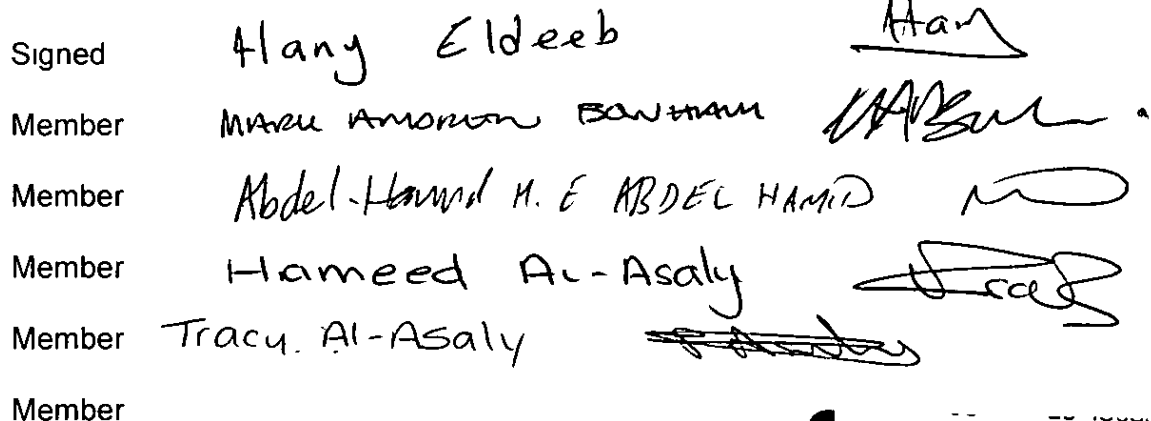 Signed Hany Eldeeb Hany
Member MARK ANDREW BONHAM
Member Abdel-Hamid H. E ABDEL HAMID
Member Hameed Al-Asaly
Member Tracy. Al-Asaly
Member